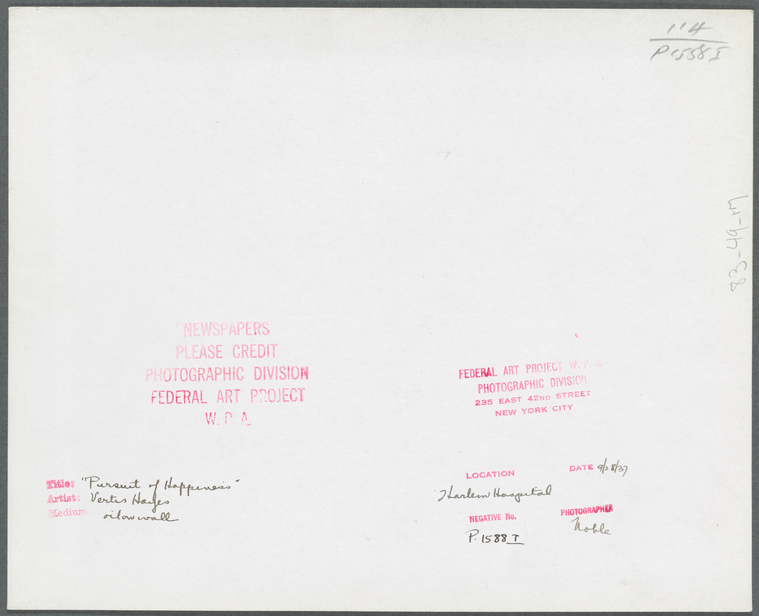 114
P1558 I
83-49-17
NEWSPAPERS
PLEASE CREDIT
PHOTOGRAPHIC DIVISION
FEDERAL ART PROJECT
W. P. A.
FEDERAL ART PROJECT W. P. A.
PHOTOGRAPHIC DIVISION
235 EAST 42ND STREET
NEW YORK CITY
Title: "Pursuit of Happiness"
Artist: Vertis Hayes
Medium oil on wall
LOCATION
Harlem Hospital
DATE 9/28/37
NEGATIVE No.
P. 1588 I
PHOTOGRAPHER
Noble